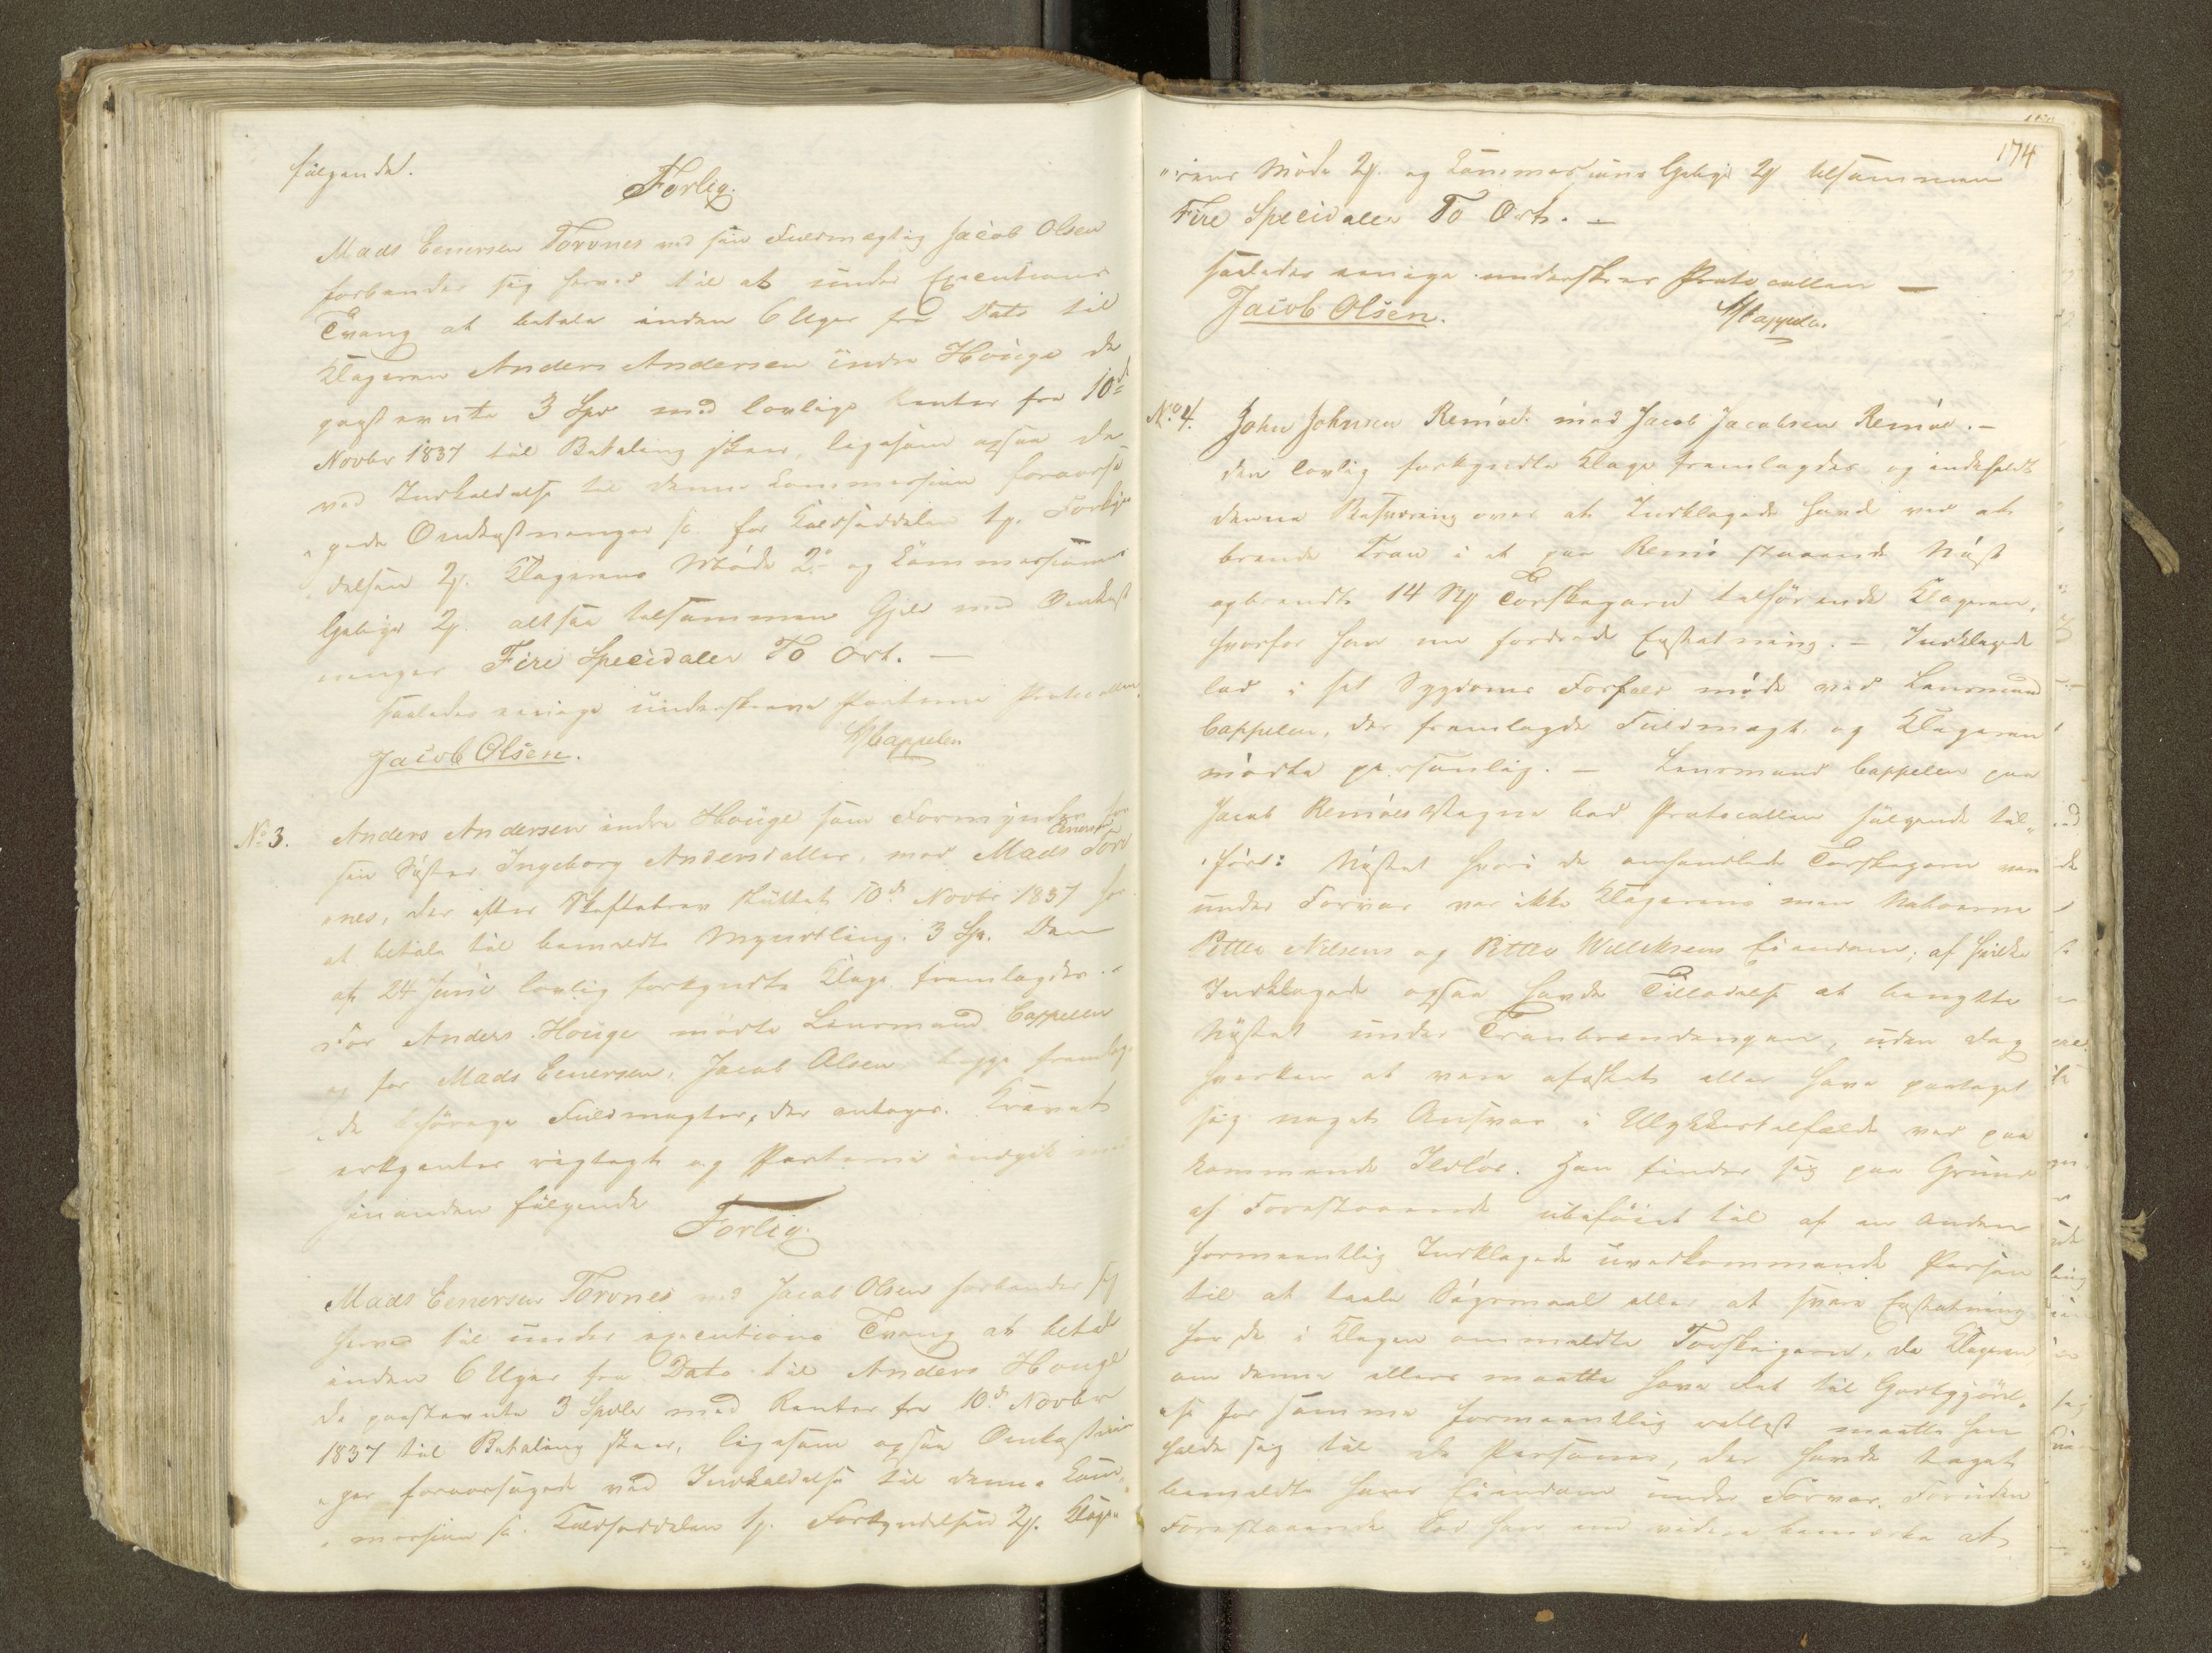 følgende.
Forlig.
Mads Eenersen Torvnes ved sin Fuldmægtig Jacob Olsen
forbinder sig herved til at under Executions
Tvang at betale inden 6 Uger fra Dato til
Klageren Anders Andersen indre Houge de
paastevnte 3 Spd med lovlige Renter fra 10de
Novbr 1837 til Betaling skeer, ligesom ogsaa de
ved Indkaldelse til denne Commission foraarsa¬
„gede Omkostninger sc. for Kaldsedelen 1 Forkyn¬
„delsen 2 Klagerens Møde 2 og Commissionens
Gebyr 2 altsaa tilsammen Gjeld med Omkost
ninger Fire Speciedaler To Ort. —
saaledes eenige underskreve Parterne Protocollen.
Jacob Olsen. Cappelen
No 3. Anders Andersen indre Houge som Formynder for
sin Søster Ingeborg Andersdatter, mod Mads Eenersen Torv
„nes, der efter Skiftebrev sluttet 10de Novbr 1837 har
at betale til bemeldte Myndtling. 3 Sp. Den
af 24 Junii lovlig forkyndte Klage fremlagdes. -
For Anders Houge mødte Lensmand Cappelen
og for Mads Eenersen, Jacob Olsen, begge fremlag¬
„de behørige Fuldmagter, der antoges. Kravet
erkjentes rigtigt og Parterne indgik med
hinanden følgende
Forlig.
Mads Eenersen Torvnes ved Jacob Olsen forbinder sig
herved til under executions Tvang at betale
inden 6 Uger fra Dato til Anders Houge
de paastevnte 3 Spdlr med Renter fra 10de Novbr
1837 til Betaling skeer, ligesom ogsaa Omkostnin
„ger foraarsagede ved Indkaldelse til denne Com¬
„mission sc. Kaldseddelen 1 Forkyndelsen 2 Klage„
174
„rens Møde 2 og Commissions Gebyr 2 tilsammen
Fire Speciedaler To Ort. —
saaledes eenige underskrev Protocollen —
Jacob Olsen. Cappelen.
No 4. John Johnsen Remøe mod Jacob Jacobsen Remøe. -
den lovlig forkyndte Klage fremlagdes og indeholdt
denne Besværing over at Indklagede havde ved at
brænde Tran i et paa Remø staaende Nøst
opbrændt 14 Torskegarn tilhørende Klageren,
hvorfor han nu fordrede Erstatning. - Indklagede
lod i sit Sygdoms Forfald møde ved Lensmand
Cappelen, der fremlagde Fuldmagt og Klageren
mødte personlig. - Lensmand Cappelen paa
Jacob Remøes Vegne bad Protocollen følgende til„
„ført: Nøstet hvori de omhandlede Torskegarn var
under Forvar var ikke Klagerens men Naboerne
Petter Nilsens og Petter Willeksens Eiendom, af hvilke
Indklagede ogsaa havde Tilladelse at benytte
Nøstet under Tranbrændingen, uden dog
hverken at være afæsket eller have paataget
sig noget Ansvar i Ulykkestilfælde ved paa
kommende Ildløs. Han finder sig paa Grund
af Forestaaende ubeføiet til af en anden
formeentlig Indklagede uvedkommende Person
til at taale Søgsmaal eller at svare Erstatning
for de i Klagen ommeldte Torskegarn, da Klageren
om denne ellers maatte have Ret til Godtgjørel„
„se for samme formeentlig rettest maatte han
holde sig til de Personer, der havde taget
bemeldte hans Eiendom under Forvar. Foruden
Forestaaende bad han end videre bemærke at